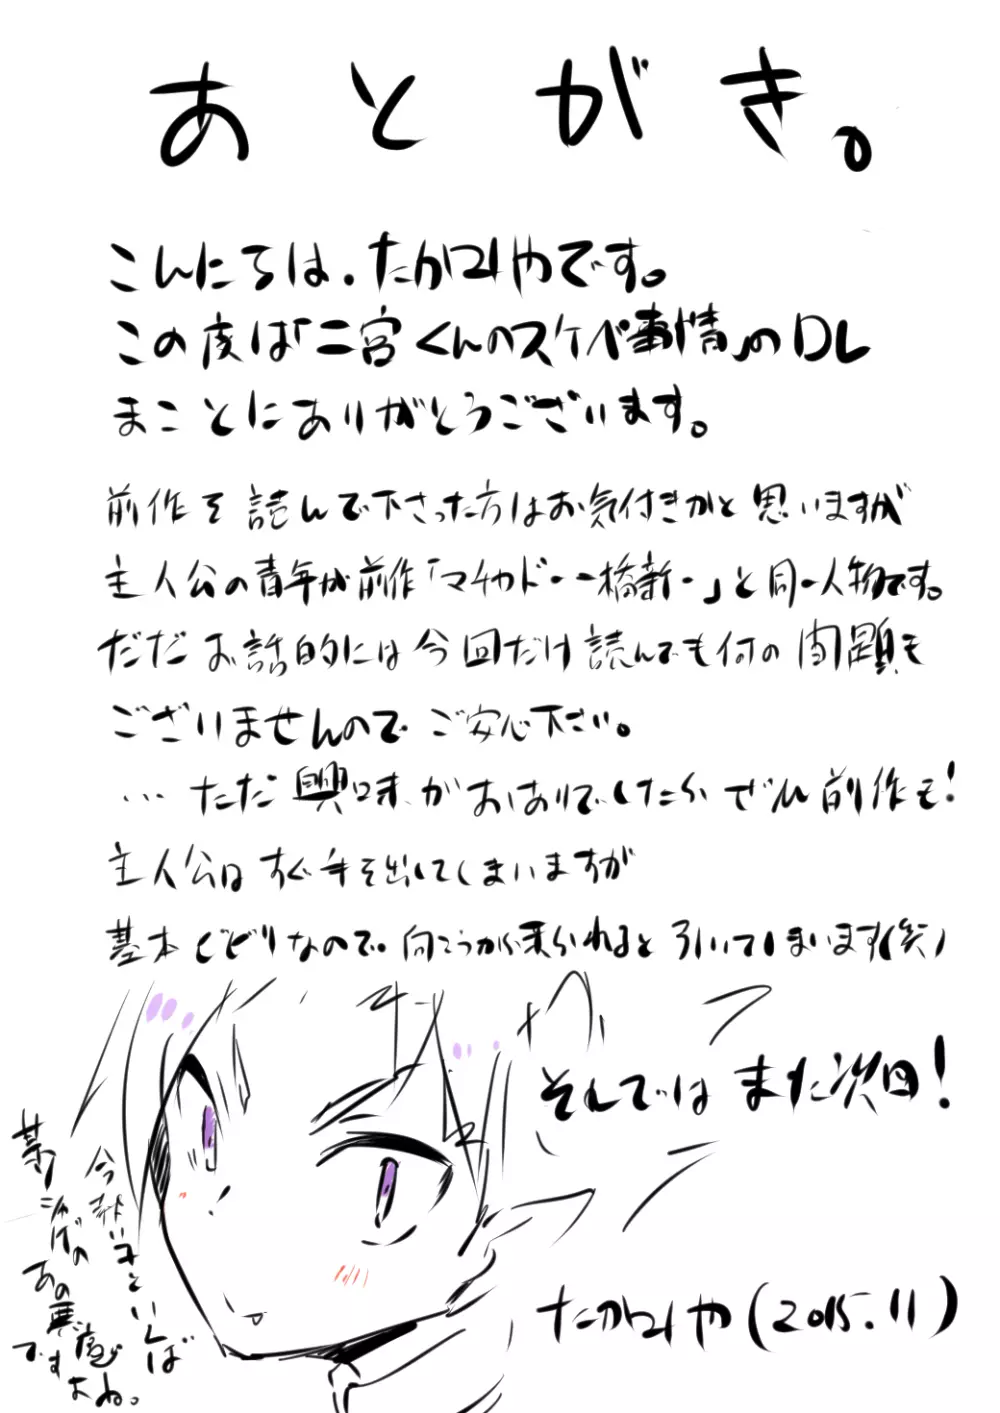 あとがき。
こんにちは、たかヨリやです。
この度は「二宮くんのスケベ事情」のDL
まことにありがとうございます。
前作を読んで下さった方はお気付きかと思いますが
主人公の青年が前作「マチカドー一橋新一」と同一人物です。
だだお話的には今回だけ読んでも何の問題も
ございませんのでご安心下さい。
…ただ興味がおありでしたらぜひ前作も！
主人公はすぐ手を出してしまいますが
基本ビビりなので向こうから来られると引いてしまいます(笑)
それではまた次回！
今熱い子といえば
某ソシャゲの
あの悪魔
ですよね。
(2015.11)